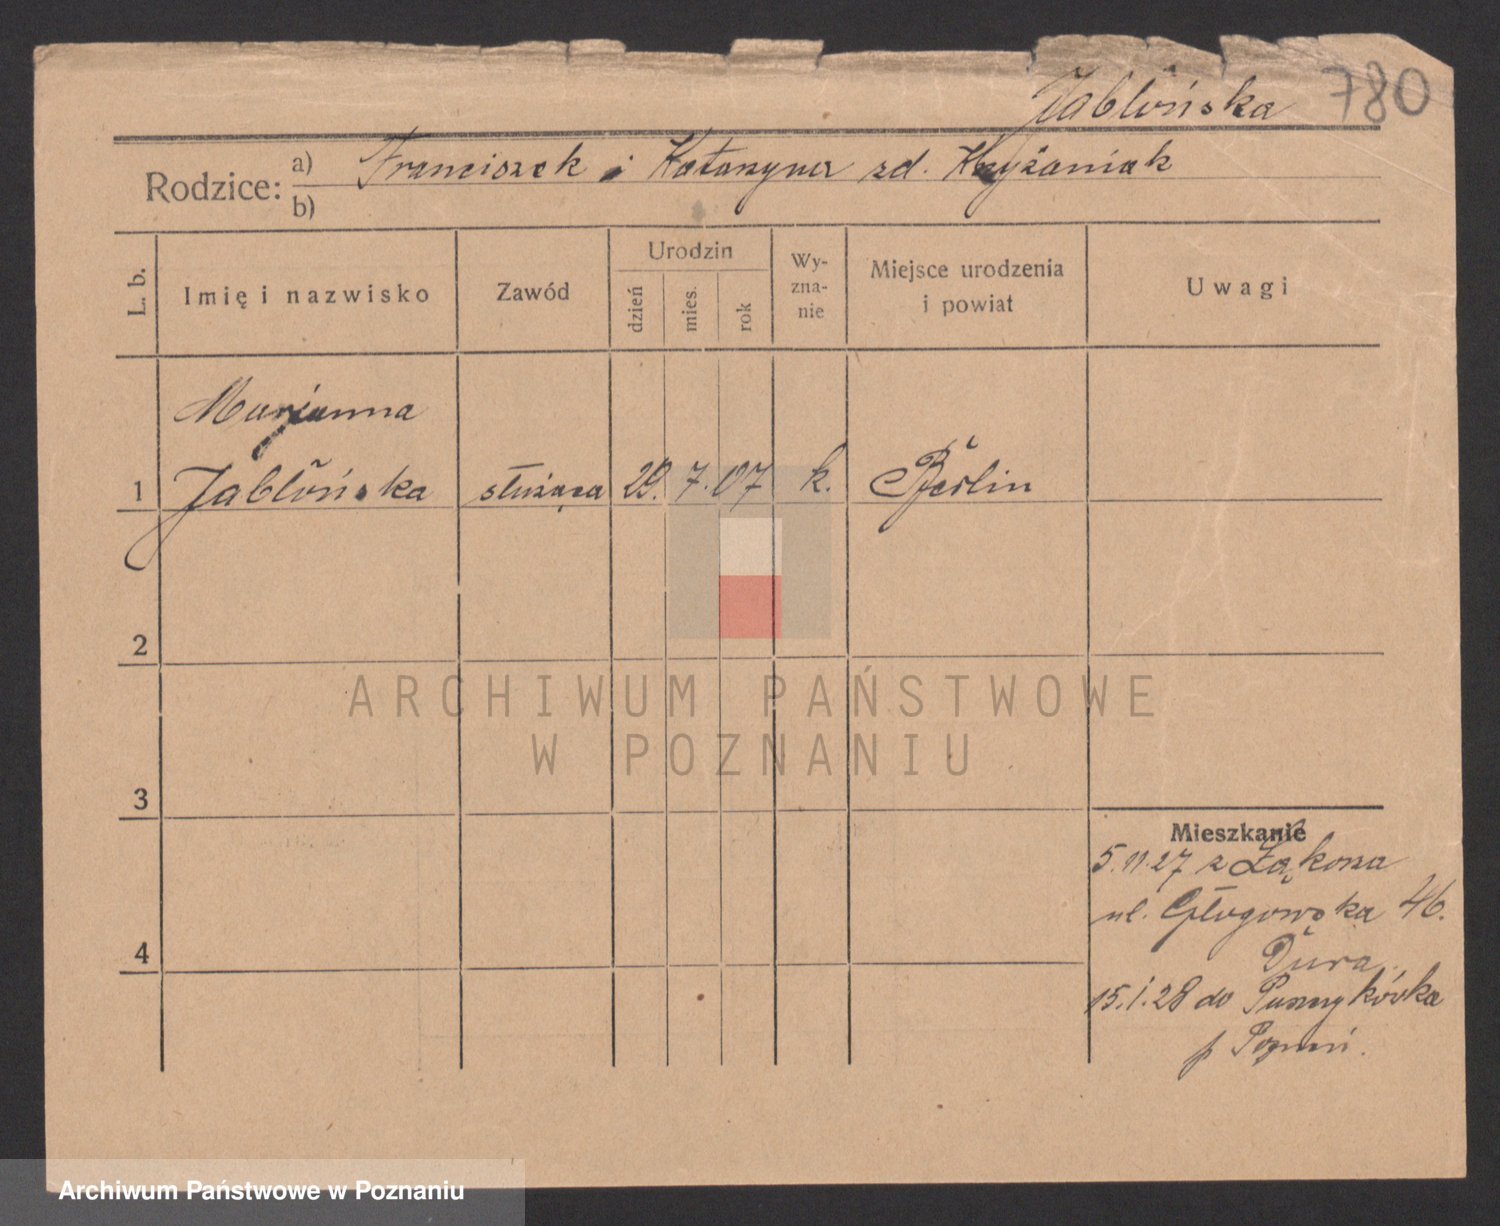 Jabłońska 780
Rodzice: a) Franciszek i Katarzyna zd. Krzyżaniak
b)
L. b.
Imię i nazwisko
Zawód
Urodzin
dzień
mies.
rok
Wy-
zna-
nie
Miejsce urodzenia
i powiat
Uwagi
Marjanna
1 Jabłońska służąca 29. 7. 07 k. Berlin
2
ARCHIWUM PAŃSTWOWE
W POZNANIU
3
Mieszkanie
5.11.27 z
ul. Głogowska 46.
Dura
4
15.1.28 do
p Poznań.
Archiwum Państwowe w Poznaniu